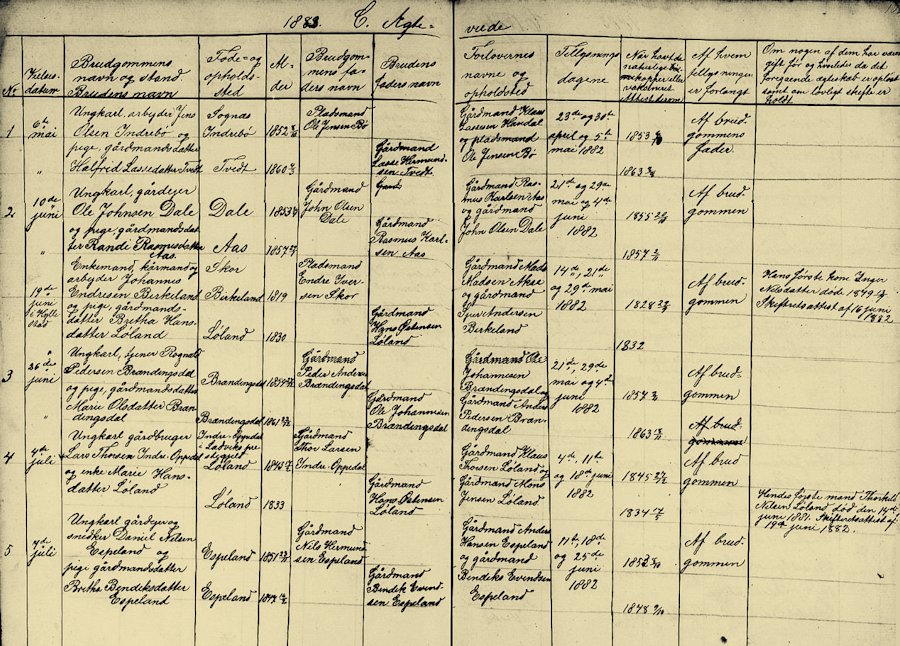 1883. C. Ægte-
viede
No
Vielses-
datum
Brudgommens
navn og stand
Brudens navn
Føde- og
opholds-
sted
Al-
der
Brudgom-
mens fa-
ders navn
Brudens
faders navn
Forlovernes
navne og
opholdsted
Tillysnings
dagene
Af hvem
tillysningen
er forlangt
Om nogen af dem har været
gift før og hvorledes da det
foregaaende ægteskab er opløst
samt om lovligt skifte er
holdt
1
6te
mai
Ungkarl, arbejder Jens
Olsen Indrebø og
pige, gårdmandsdatter
Halfrid Lassedatter Tvedt
Sognæs
Indrebø
Tvedt
1852
1860
Pladsmand
Ole Jensen Bø
Gårdmand
Lasse Hermund-
sen Tvedt
Gårdmand Klaus
Lassesen Handal
og pladsmand
Ole Jensen Bø
23de og 30te
april og 5te
mai 1882
1853
1863
Af brud-
gommens
fader.
2
10de
juni
Ungkarl, gårdejer
Ole Johnsen Dale
og pige, gårdmandsdat-
ter Randi Rasmusdatter
Aas.
Dale
Aas
1853
1857
Gårdmand
John Olsen
Dale
Gårdmand
Rasmus Karl-
sen Aas
Gårdmand Ras-
mus Karlsen Aas
og gårdmand
John Olsen Dale
21de og 29de
mai og 4de
juni
1882
1855
1857
Af brud-
gommen
19de
juni
i Hylle-
stad
Enkemand, kårmand og
arbejder Johannes
Endresen Birkeland
og pige, gårdmands-
datter Bretha Hans-
datter Løland
Skor
Birkeland
Løland
1819
1830
Pladsmand
Endre Iver-
sen Skor
Gårdmand
Hans Østensen
Løland
Gårdmand Mads
Madsen
og gårdmand
Andersen
Birkeland
14de, 21de
og 29de mai
1882
1828
1832
Af brud-
gommen
Hans første kone Inger
Nilsdatter døde 1879
Skifteretsattest af 16 juni
1882
3
26de
juni
Ungkarl, tjener Rognald
Pedersen Brandingsdal
og pige, gårdmandsdatter
Marie Olsdatter Bran-
dingsdal
Brandingsdal
Brandingsdal
1854
1861
Gårdmand
Peder Anders
Brandingsdal
Gårdmand
Ole Johannesen
Brandingsdal
Gårdmand Ole
Johannesen
Brandingsdal og
Gårdmand Anders
Pedersen Bran-
dingsdal
21de, 29de
mai og 4de
juni
1882
1857
1863
Af brud-
gommen
Af brud-
gommen
4
4de
juli
Ungkarl gårdbruger
Lars Thorsen Indre Oppedal
og enke Marie Hans-
datter Løland
Indre Oppedal
Ladviks pre-
stegjeld
Løland
Løland
1843
1833
Gårdmand
Thor Larsen
Indre Oppedal
Gårdmand
Hans Østensen
Løland
Gårdmand Klaus
Thosen Løland og
Gårdmand Mons
Jensen Løland.
4de, 11te
og 18de juni
1882
1845
1834
Af brud
gommen
Hendes første mand Thorkild
Nilsen Løland død den 14de
juni 1881. Skifteretsattest af
19de juni 1882.
5
7de
juli
Ungkarl gårdejer og
snedker Daniel Nilsen
Espeland og
pige gårdmandsdatter
Brethe Bendiksdatter
Espeland
Espeland
Espeland
1851
Gårdmand
Nils Hermund-
sen Espeland
Gårdmand
Bendik Eivind-
sen Espeland
Gårdmand Anders
Hansen Espeland
og gårdmand
Bendiks Eivindsen
Espeland
11te, 18de
og 25de
juni
1882
1852
1848
Af brud-
gommen